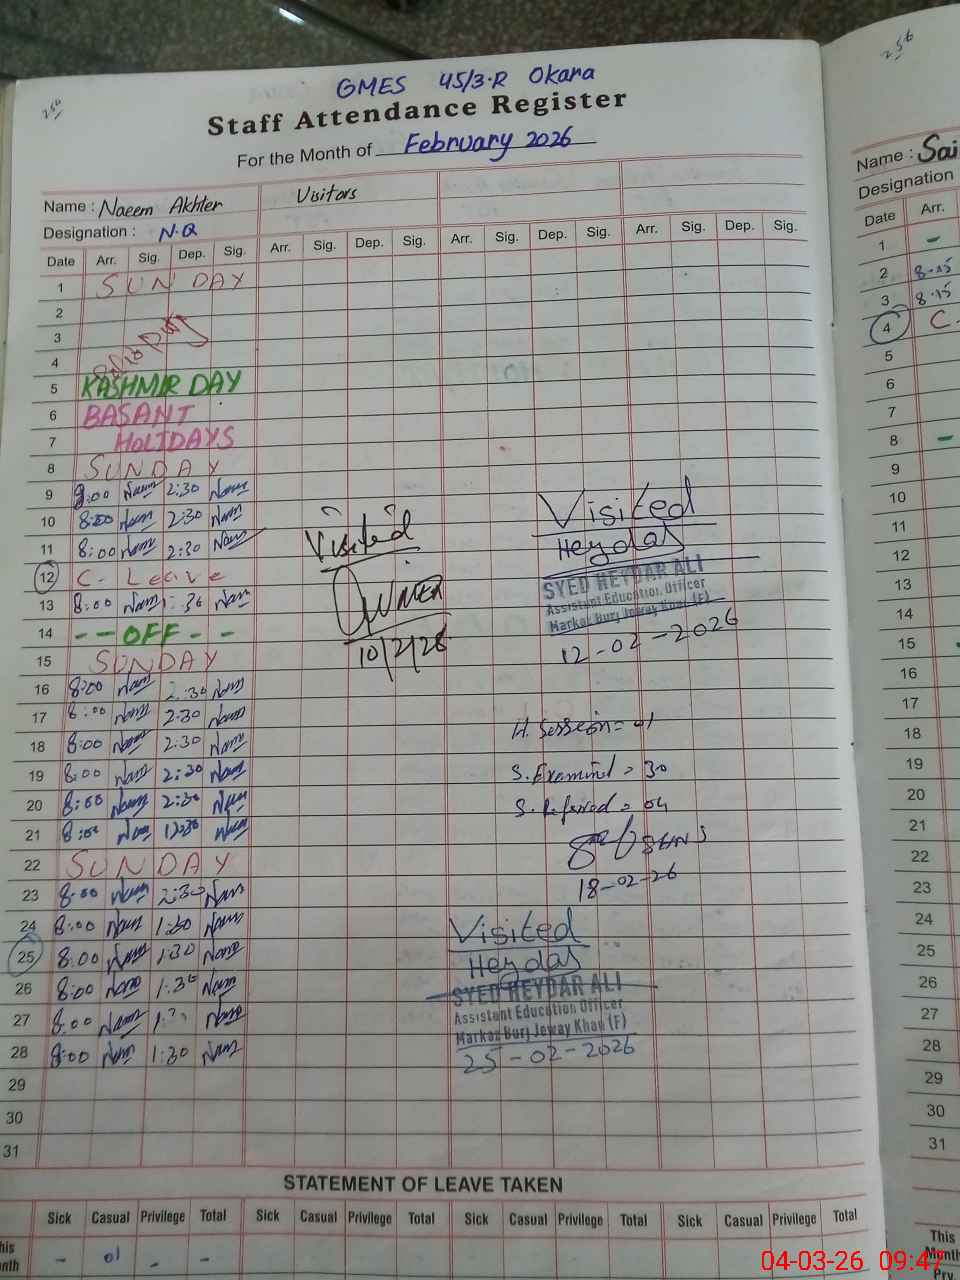 256
256
GMES 45/3-R Okara
Staff Attendance Register
For the Month of February 2026
Name : Naeem Akhter
Visitors
Designation : N.Q
Date Arr. Sig. Dep. Sig. Arr. Sig. Dep. Sig. Arr. Sig. Dep. Sig. Arr. Sig. Dep. Sig.
1 SUNDAY
2
3
4
5 KASHMIR DAY
6 BASANT
7 HOLIDAYS
8 SUNDAY
9 9:00 Naeem 2:30 Naeem
10 8:00 Naeem 2:30 Naeem
11 8:00 Naeem 2:30 Naeem
12 C. Leave
13 8:00 Naeem 1:30 Naeem
14 - - OFF - -
15 SUNDAY
16 8:00 Naeem 2:30 Naeem
17 8:00 Naeem 2:30 Naeem
18 8:00 Naeem 2:30 Naeem
19 8:00 Naeem 2:30 Naeem
20 8:00 Naeem 2:30 Naeem
21 8:00 Naeem Naeem
22 SUNDAY
23 8:00 Naeem 2:30 Naeem
24 8:00 Naeem 1:30 Naeem
25 8:00 Naeem 1:30 Naeem
26 8:00 Naeem 1:30 Naeem
27 8:00 Naeem Naeem
28 8:00 Naeem 1:30 Naeem
29
30
31
Visited
10/2/26
Visited
Heydar
SYED HEYDAR ALI
Assistant Education Officer
Markaz Burj Jeway Khan (F)
12-02-2026
H. Session = 01
S. Examined = 30
S. Referred = 04
18-02-26
Visited
Heydar
SYED HEYDAR ALI
Assistant Education Officer
Markaz Burj Jeway Khan (F)
25-02-2026
STATEMENT OF LEAVE TAKEN
Sick Casual Privilege Total Sick Casual Privilege Total Sick Casual Privilege Total Sick Casual Privilege Total
his
nth - 01 - -
Name : Sai
Designation
Date Arr.
1 -
2 8.15
3 8.15
4 C.
5
6
7
8 -
9
10
11
12
13
14
15
16
17
18
19
20
21
22
23
24
25
26
27
28
29
30
31
This
Month
Prv
04-03-26 09:47